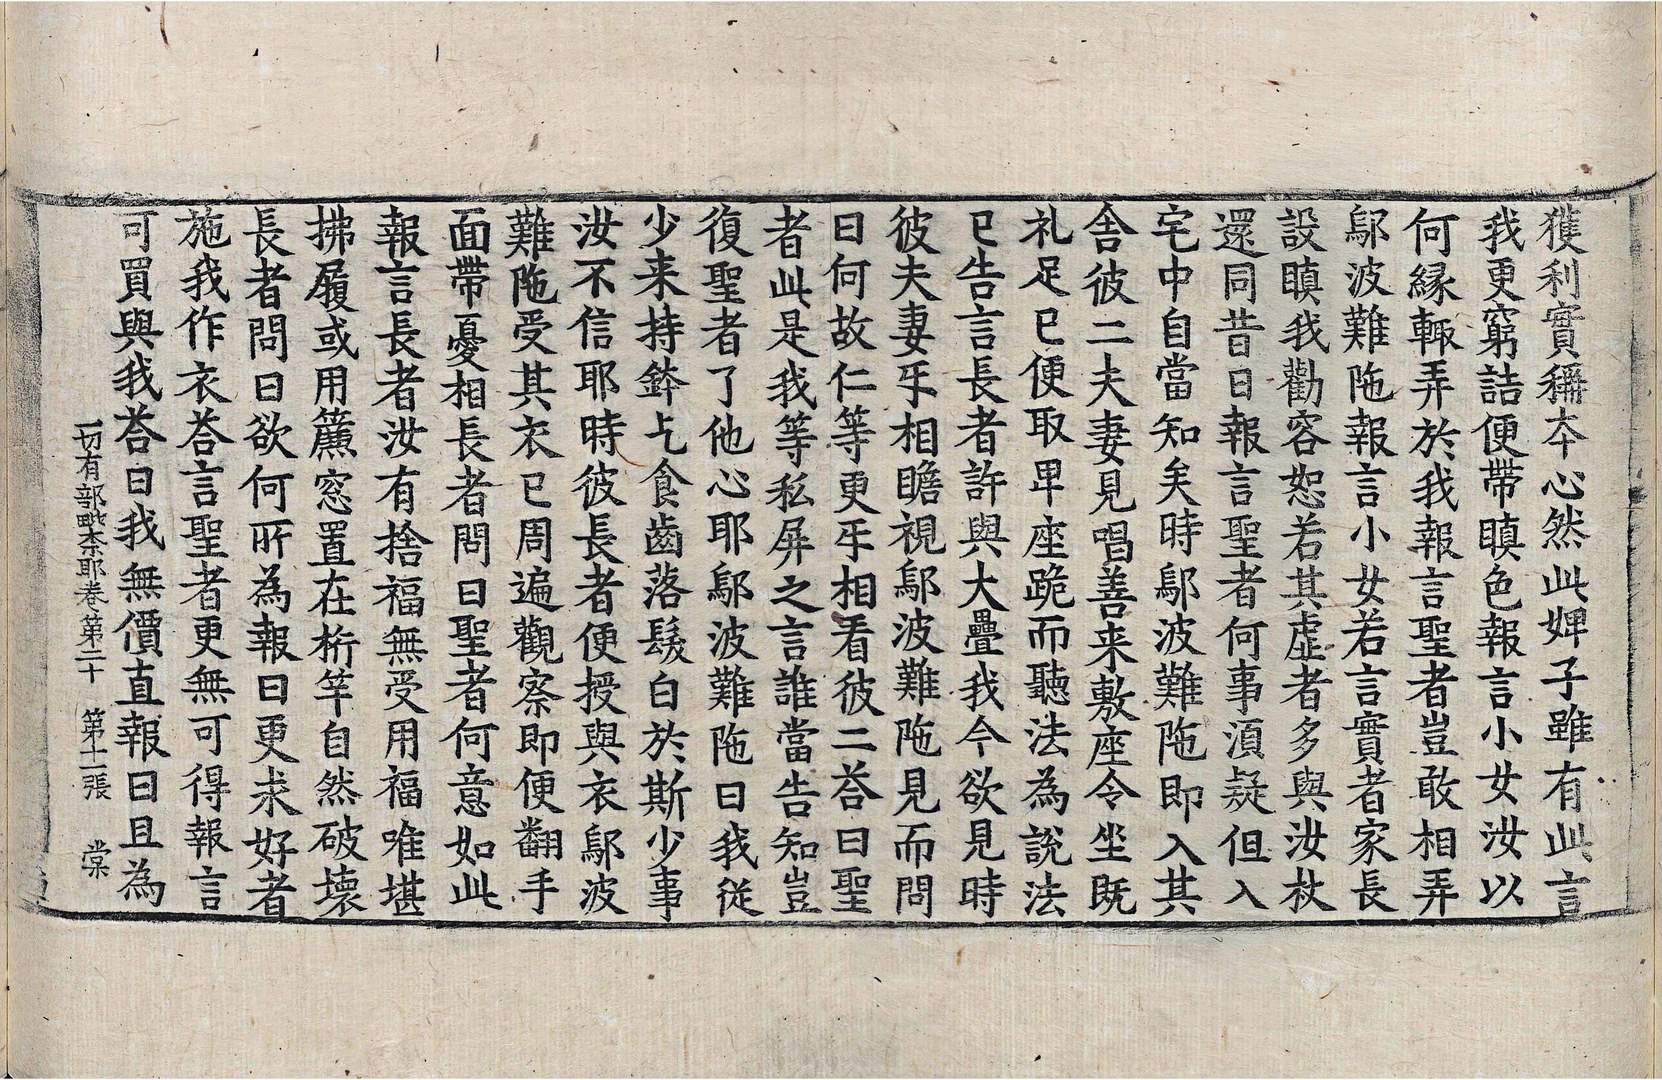 獲利實稱本心然此婢子雖有此言
我更窮詰便帶瞋色報言小女汝以
何緣輙弄於我報言聖者豈敢相弄
鄔波難陁報言小女若言實者家長
設瞋我勸容恕若其虛者多與汝杖
還同昔日報言聖者何事湏疑但入
宅中自當知矣時鄔波難陁即入其
舍彼二夫妻見唱善来敷座令坐既
礼足已便取卑座跪而聽法為說法
已告言長者許與大疊我今欲見時
彼夫妻㸦相瞻視鄔波難陁見而問
曰何故仁等更㸦相看彼二荅曰聖
者此是我等私屏之言誰當告知豈
復聖者了他心耶鄔波難陁曰我従
少来持鉢乞食齒落髮白於斯少事
汝不信耶時彼長者便授與衣鄔波
難陁受其衣已周遍觀察即便翻手
面帶憂相長者問曰聖者何意如此
報言長者汝有捨福無受用福唯堪
拂履或用簾窓置在桁竿自然破壞
長者問曰欲何所為報曰更求好者
施我作衣荅言聖者更無可得報言
可買與我荅曰我無價直報曰且為
一切有部毗奈耶卷第二十 第十一張 棠